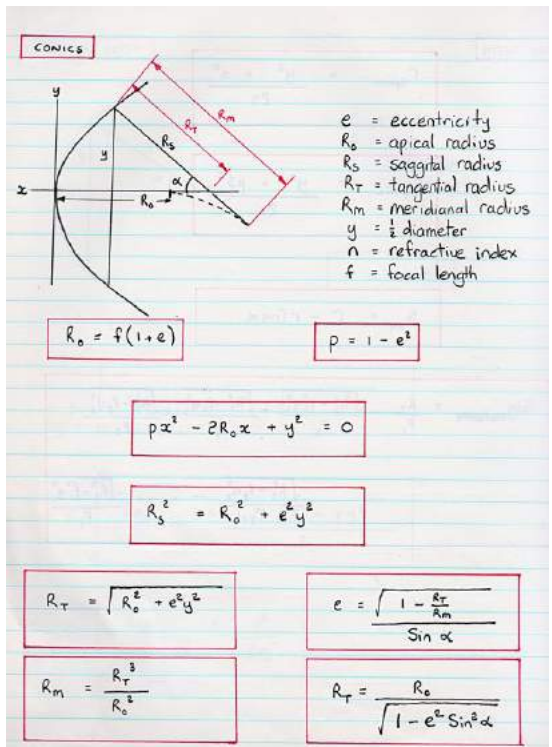 CONICS
y
R_m
R_T
R_s
y
α
x
R_o
e = eccentricity
R_o = apical radius
R_s = saggital radius
R_T = tangential radius
R_m = meridianal radius
y = ½ diameter
n = refractive index
f = focal length
R_o = f(1+e)
p = 1 - e²
px² - 2R_o x + y² = 0
R_s² = R_o² + e²y²
R_T = √(R_o² + e²y²)
e = √(1 - R_T/R_m) / Sin α
R_m = R_T³ / R_o²
R_T = R_o / √(1 - e² Sin² α)